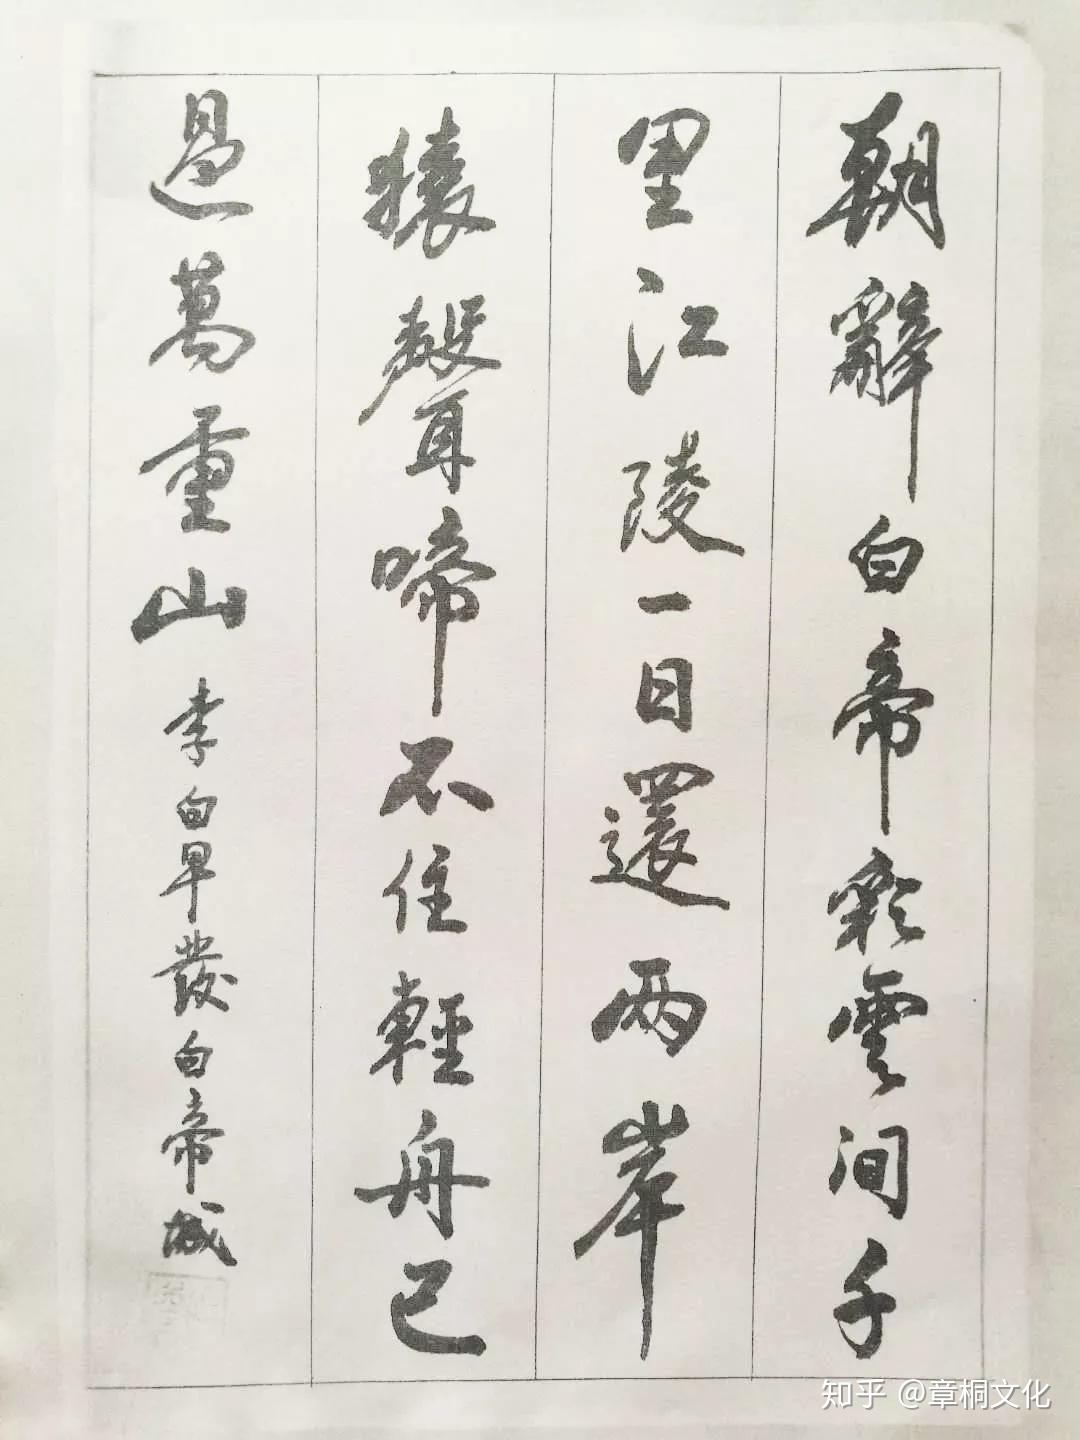 朝辭白帝彩雲間千
里江陵一日還兩岸
猿聲啼不住輕舟已
過萬重山 李白早發白帝城
知乎 @章桐文化